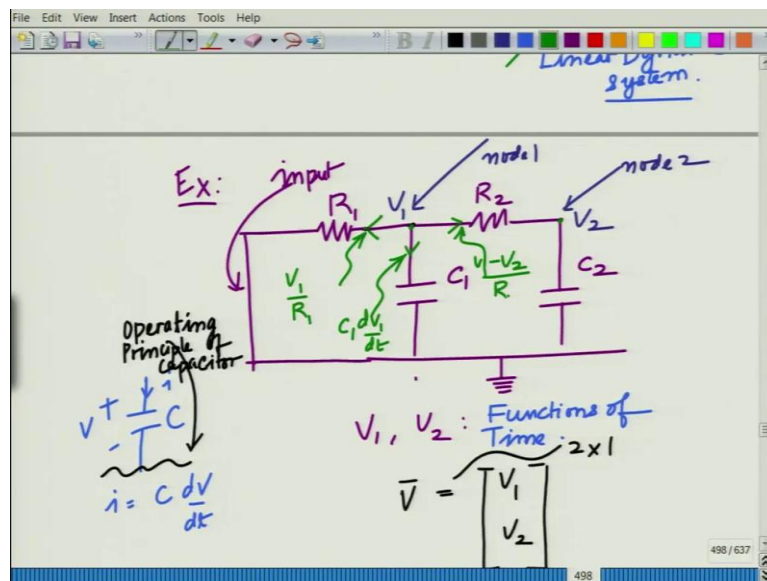 File Edit View Insert Actions Tools Help
B I
Linear Dyn
System.
Ex:
input
node1
node2
R1
V1
R2
V2
V1/R1
C1 dV1/dt
C1
V-V2/R
C2
Operating
Principle of
Capacitor
i
V + - C
i = C dV/dt
V1, V2 : Functions of
Time.
2x1
V̅ = [V1
V2]
498/637
498